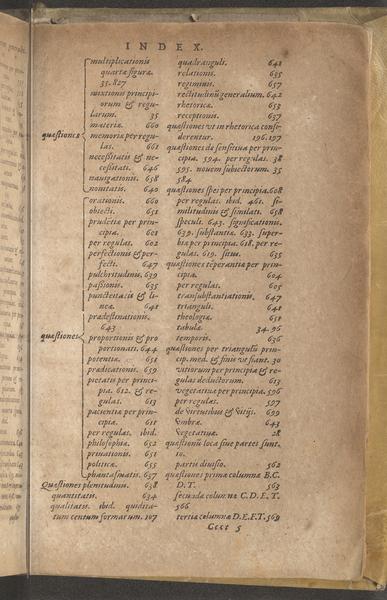 INDEX.
multiplicationis
quartæ figuræ.
35. 827
mixtionis principi-
orum & regu-
larum. 35
materiæ. 660
quæstiones memoriæ per regu-
las. 661
necessitatis & ne-
cessitati. 646
navigationis. 658
novitatis. 640
orationis. 660
obiecti. 651
prudētia per prin-
cipia. 601
per regulas. 602
perfectionis & per-
fecti. 647
pulchritudinis. 639
passionis. 635
punctuitatis & li-
neæ. 641
prædestinationis.
643
quæstiones proportionis & pro
portionati. 644
potentiæ. 651
prædicationis. 659
pietatis per princi-
pia. 612. & re-
gulas. 613
pacientia per prin-
cipia. 611
per regulas. ibid.
philosophiæ. 652
privationis. 651
politicæ. 655
phantasmatis. 637
Quæstiones plenitudinis. 638
quantitatis. 634
qualitatis. ibid. quidita-
tum centum formarum. 107
quadranguli. 641
relationis. 635
regiminis. 657
rectitudinū generalium. 642
rhetoricæ. 653
receptionis. 637
quæstiones vt in rhetorica consi-
derentur. 196. 197
quæstiones de sensitiua per prin-
cipia. 594. per regulas. 38
595. nouem subiectorum. 35
584
quæstiones spei per principia. 608
per regulas. ibid. 461. si-
militudinis & similati. 658
speculi. 643. significationis.
639. substantiæ. 633. super-
bia per principia. 618. per re-
gulas. 619. situs. 635
quæstiones tēperantia per prin-
cipia. 604
per regulas. 605
transubstantiationis. 647
trianguli. 641
theologiæ. 651
tabulæ 34. 96
temporis. 636
quæstiones per triangulū prin-
cip. med. & finis ve fiant. 30
vitiorum per principia & re-
gulas deductorum. 613
vegetatiuæ per principia. 596
per regulas. 597
de virtutibus & vitijs. 699
vmbræ. 643
vegetatiuæ. 28
quæstionū loca siue partes sunt.
10.
partis diuisio. 562
quæstiones primæ columnæ B.C.
D.T. 563
secūdæ columnæ C.D.E.T.
566
tertiæ columnæ D.E.F.T. 569
Cccc 5